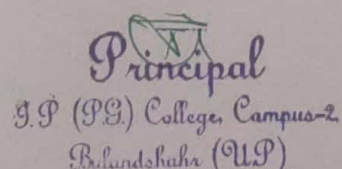 Principal
I.P (P.G.) College, Campus-2
Bulandshahr (UP)